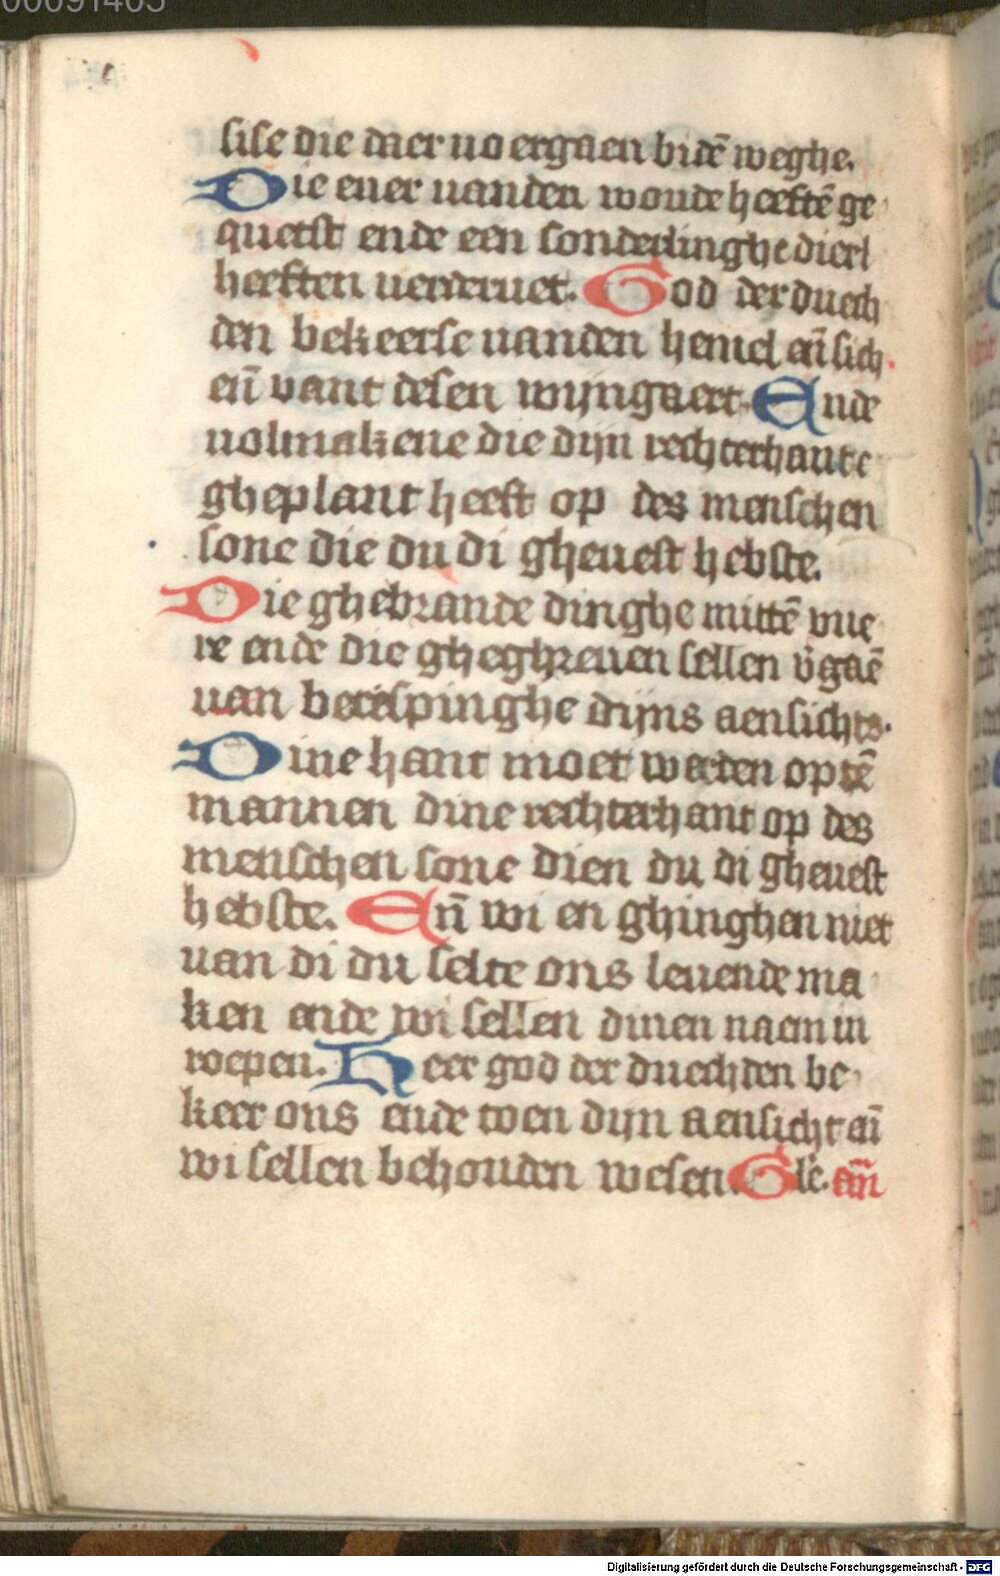 00091405
sise die daer uoergaen bidē weghe.
Die euer uanden woude heeftē ge
quetst ende een sonderlinghe dierl
heeften uerderuet. God der duech
den bekeerse uanden hemel eñ sich
eñ vant desen wijngaert. Ende
uolmakene die dijn rechterhant
gheplant heeft op des menschen
sone die du di gheuest hebste.
Die ghebrande dinghe mittē vue
re ende die gheghreuen sellen v̄gaē
uan berespinghe dijns aensichts.
Dine hant moet werden op tē
mannen dine rechterhant op des
menschen sone dien du di gheuest
hebste. Eñ wi en ghinghen niet
uan di du selte ons leuende ma
ken ende wi sellen dinen naem in
roepen. Heer god der duechden be
keer ons ende toen dijn aensicht eñ
wi sellen behouden wesen. Glē. am̄
Digitalisierung gefördert durch die Deutsche Forschungsgemeinschaft - DFG